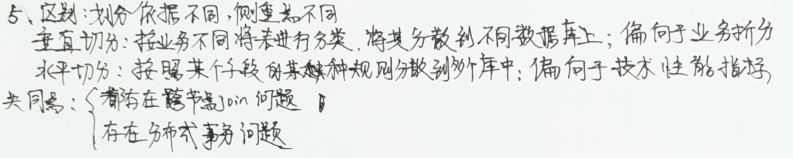 5、区别：划分依据不同，侧重点不同
垂直切分：按业务不同将表进行分类，将其分散到不同数据库上；偏向于业务拆分
水平切分：按照某个字段的某种规则分散到多个库中；偏向于技术性能指标，
共同点：都存在跨节点join问题
存在分布式事务问题